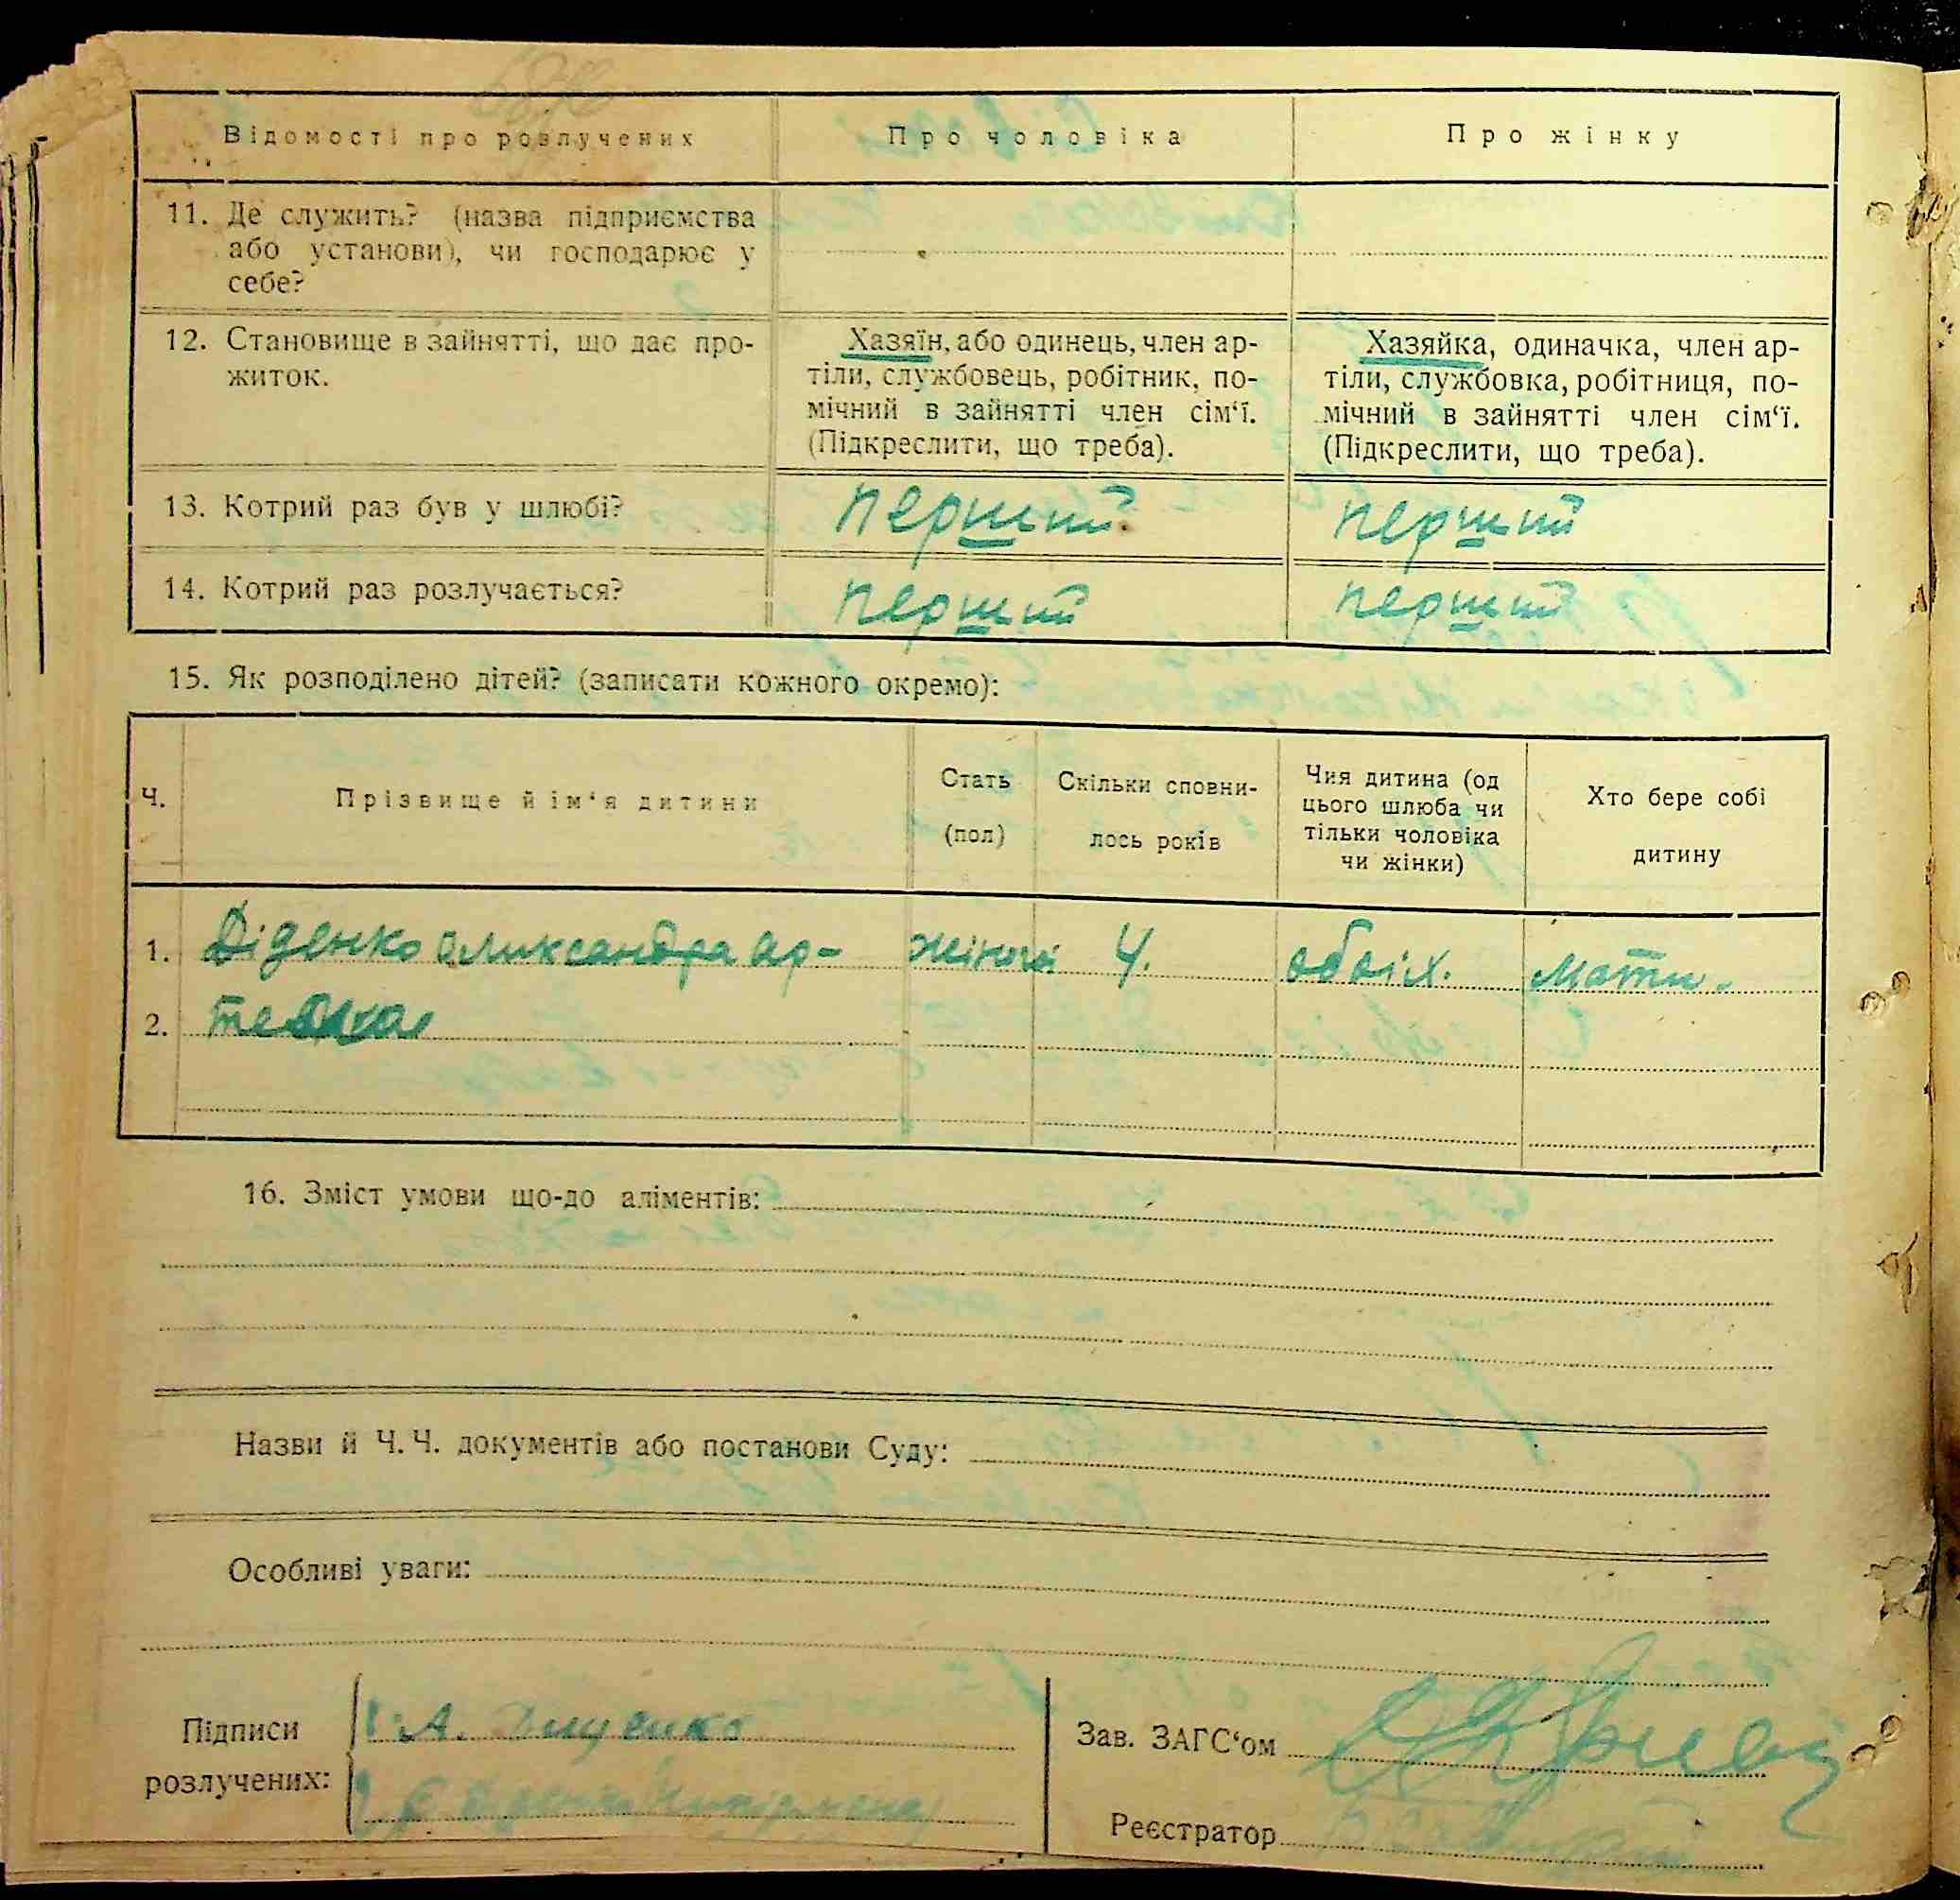 Відомості про розлучених
Про чоловіка
Про жінку
11. Де служить? (назва підприємства
або установи), чи господарює у
себе?
12. Становище в зайнятті, що дає про-
житок.
Хазяїн, або одинець, член ар-
тіли, службовець, робітник, по-
мічний в зайнятті член сім‘ї.
(Підкреслити, що треба).
Хазяйка, одиначка, член ар-
тіли, службовка, робітниця, по-
мічний в зайнятті член сім‘ї.
(Підкреслити, що треба).
13. Котрий раз був у шлюбі?
перший.
перший
14. Котрий раз розлучається?
перший
перший
15. Як розподілено дітей? (записати кожного окремо):
Ч.
Прізвище й ім‘я дитини
Стать
(пол)
Скільки сповни-
лось років
Чия дитина (од
цього шлюба чи
тільки чоловіка
чи жінки)
Хто бере собі
дитину
1. Діденко Оликсандра Ар- 4. обоіх. мати.
2.
16. Зміст умови що-до аліментів:
Назви й Ч. Ч. документів або постанови Суду:
Особливі уваги:
Підписи
розлучених:
1. А.
Зав. ЗАГС‘ом
Реєстратор